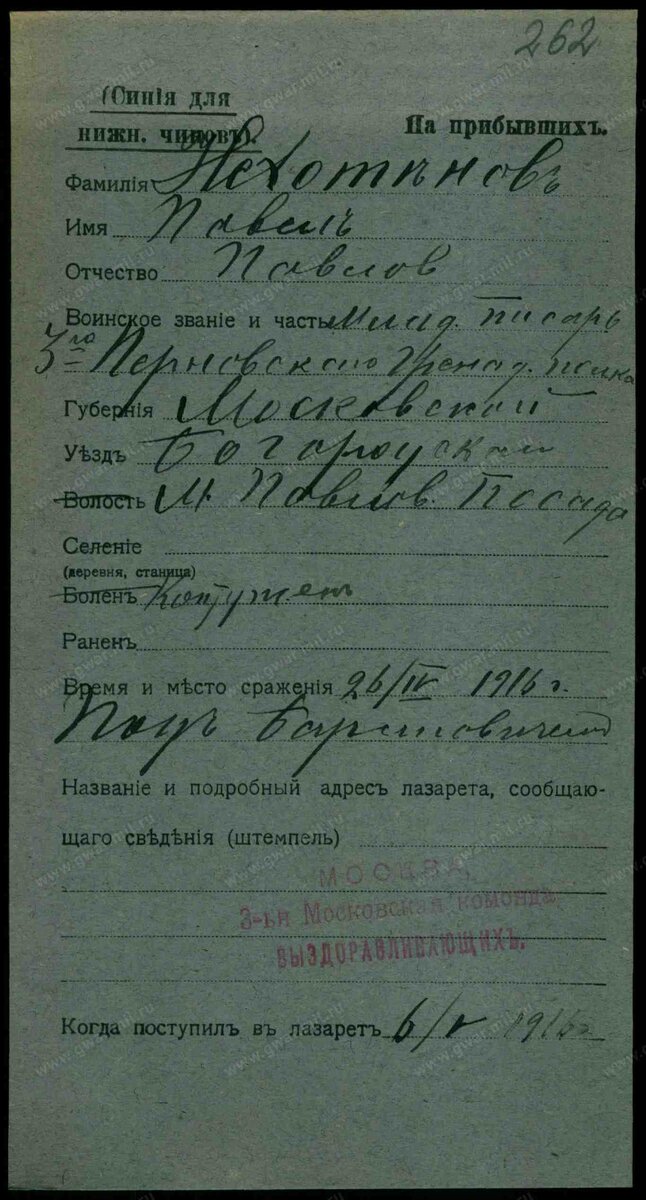 262
(Синія для
нижн. чиновъ).
На прибывшихъ.
Фамилія Нехотѣновъ
Имя Павелъ
Отчество Павлов
Воинское званіе и часть Млад. писарь
3го Перновскаго Гренад. полка
Губернія Московской
Уѣздъ Богородскаго
Волость М. Павлов. Посада
Селеніе
(деревня, станица)
Боленъ Контужен
Раненъ
Время и мѣсто сраженія 26/IV 1916 г.
Подъ Барановичами
Названіе и подробный адресъ лазарета, сообщаю-
щаго свѣдѣнія (штемпель)
МОСКВА,
3-ья Московская команда
ВЫЗДОРАВЛИВАЮЩИХЪ.
Когда поступилъ въ лазаретъ 6/V 1916 г.
www.gwar.mil.ru